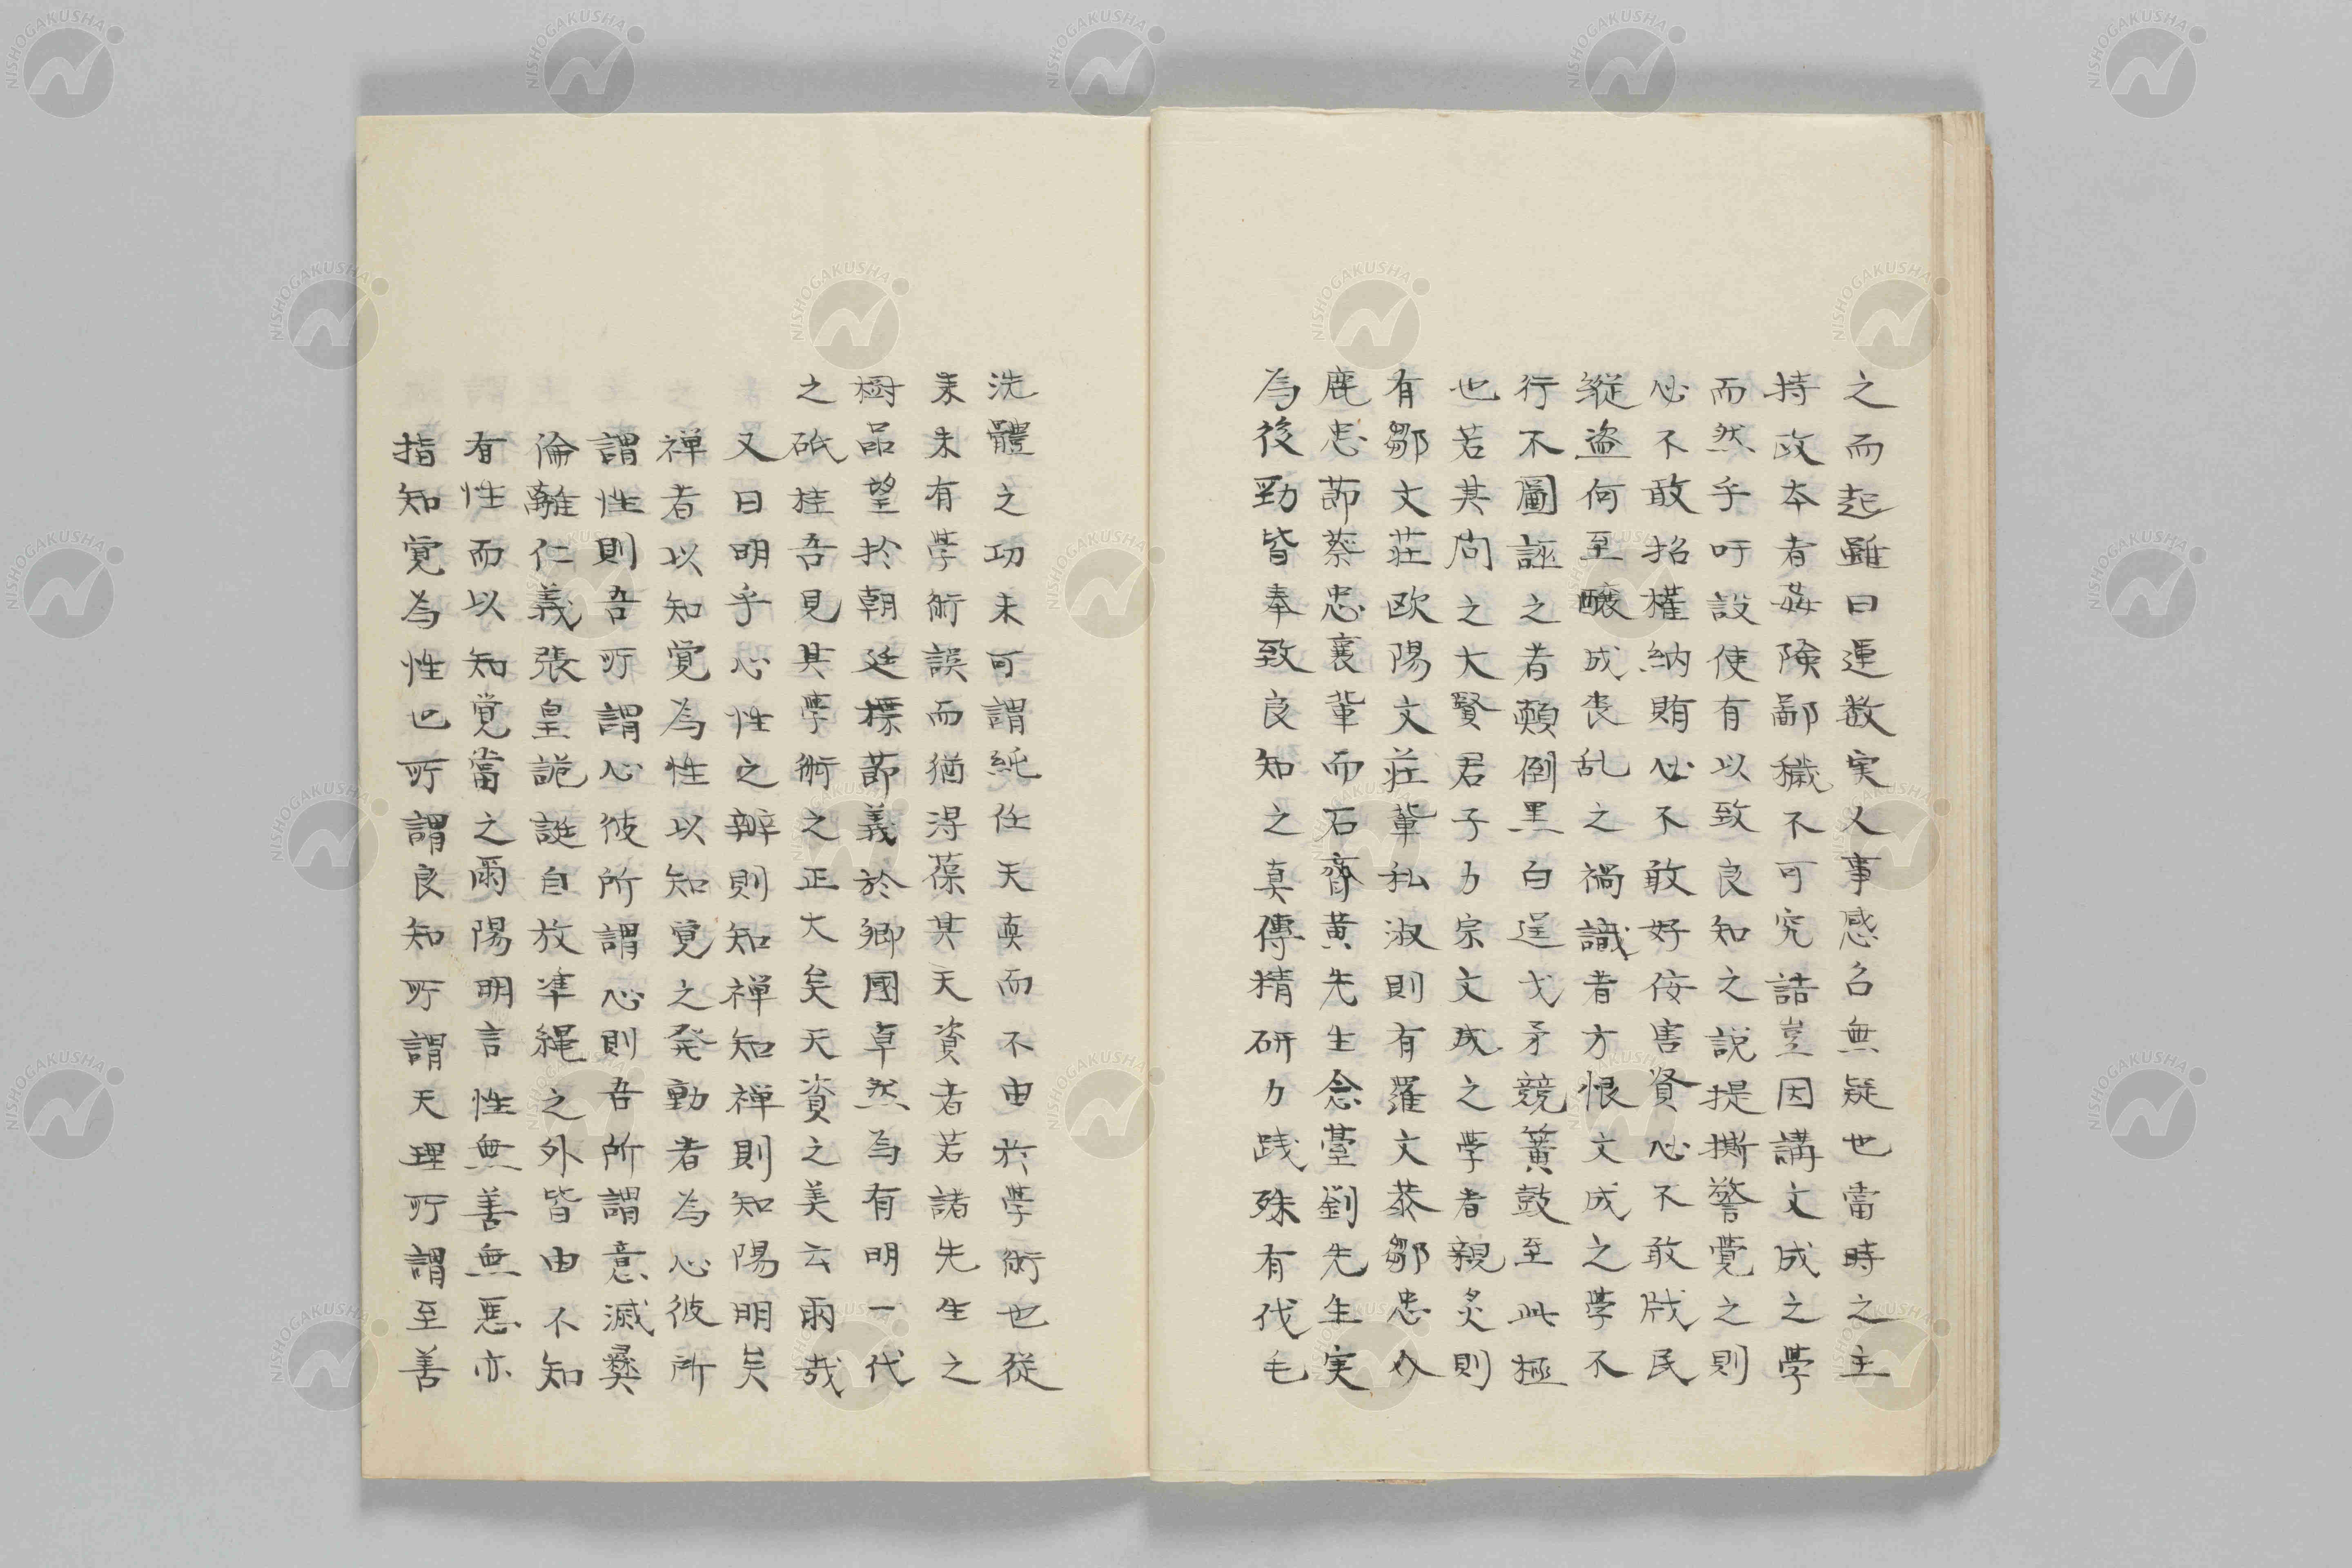 之而起雖曰運数実人事感召無疑也當時之主
持政本者姦険鄙穢不可究詰豈因講文成之學
而然乎吁設使有以致良知之説提撕警覺之則
必不敢招權納賄必不敢好佞害賢必不敢戕民
縦盗何至醸成喪乱之禍識者方恨文成之學不
行不圖誣之者顛倒黒白逞戈矛競簧鼓至此極
也若其同之大賢君子力宗文成之學者親炙則
有鄒文荘欧陽文荘輩私淑則有羅文恭鄒忠介
鹿忠節蔡忠襄輩而石齋黄先生念臺劉先生実
為後勁皆奉致良知之真傳精研力践殊有伐毛
洗體之功未可謂純任天真而不由於學術也從
来未有學術誤而猶得葆其天資者若諸先生之
樹品望於朝廷標節義於郷國卓然為有明一代
之砥柱吾見其學術之正大矣天資之美云爾哉
又曰明乎心性之辨則知禅知禅則知陽明矣
禅者以知覚為性以知覚之発動者為心彼所
謂性則吾所謂心彼所謂心則吾所謂意滅彝
倫離仁義張皇詭誕自放準縄之外皆由不知
有性而以知覚當之爾陽明言性無善無悪亦
指知覚為性也所謂良知所謂天理所謂至善